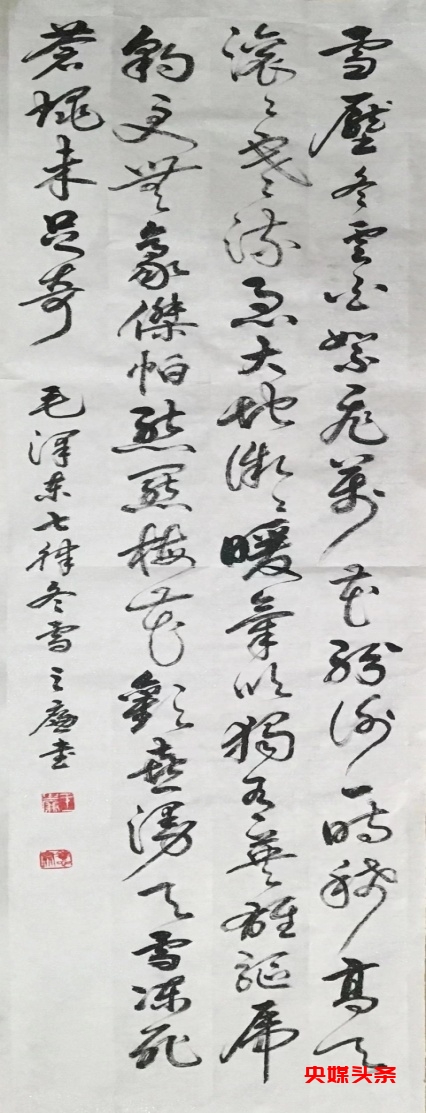 雪壓冬雲白絮飛萬花紛謝一時稀高天
滾〻寒流急大地微〻暖氣吹獨有英雄驅虎
豹更無豪傑怕熊羆梅花歡喜漫天雪凍死
蒼蠅未足奇
毛澤東七律冬雪 書
央媒头条